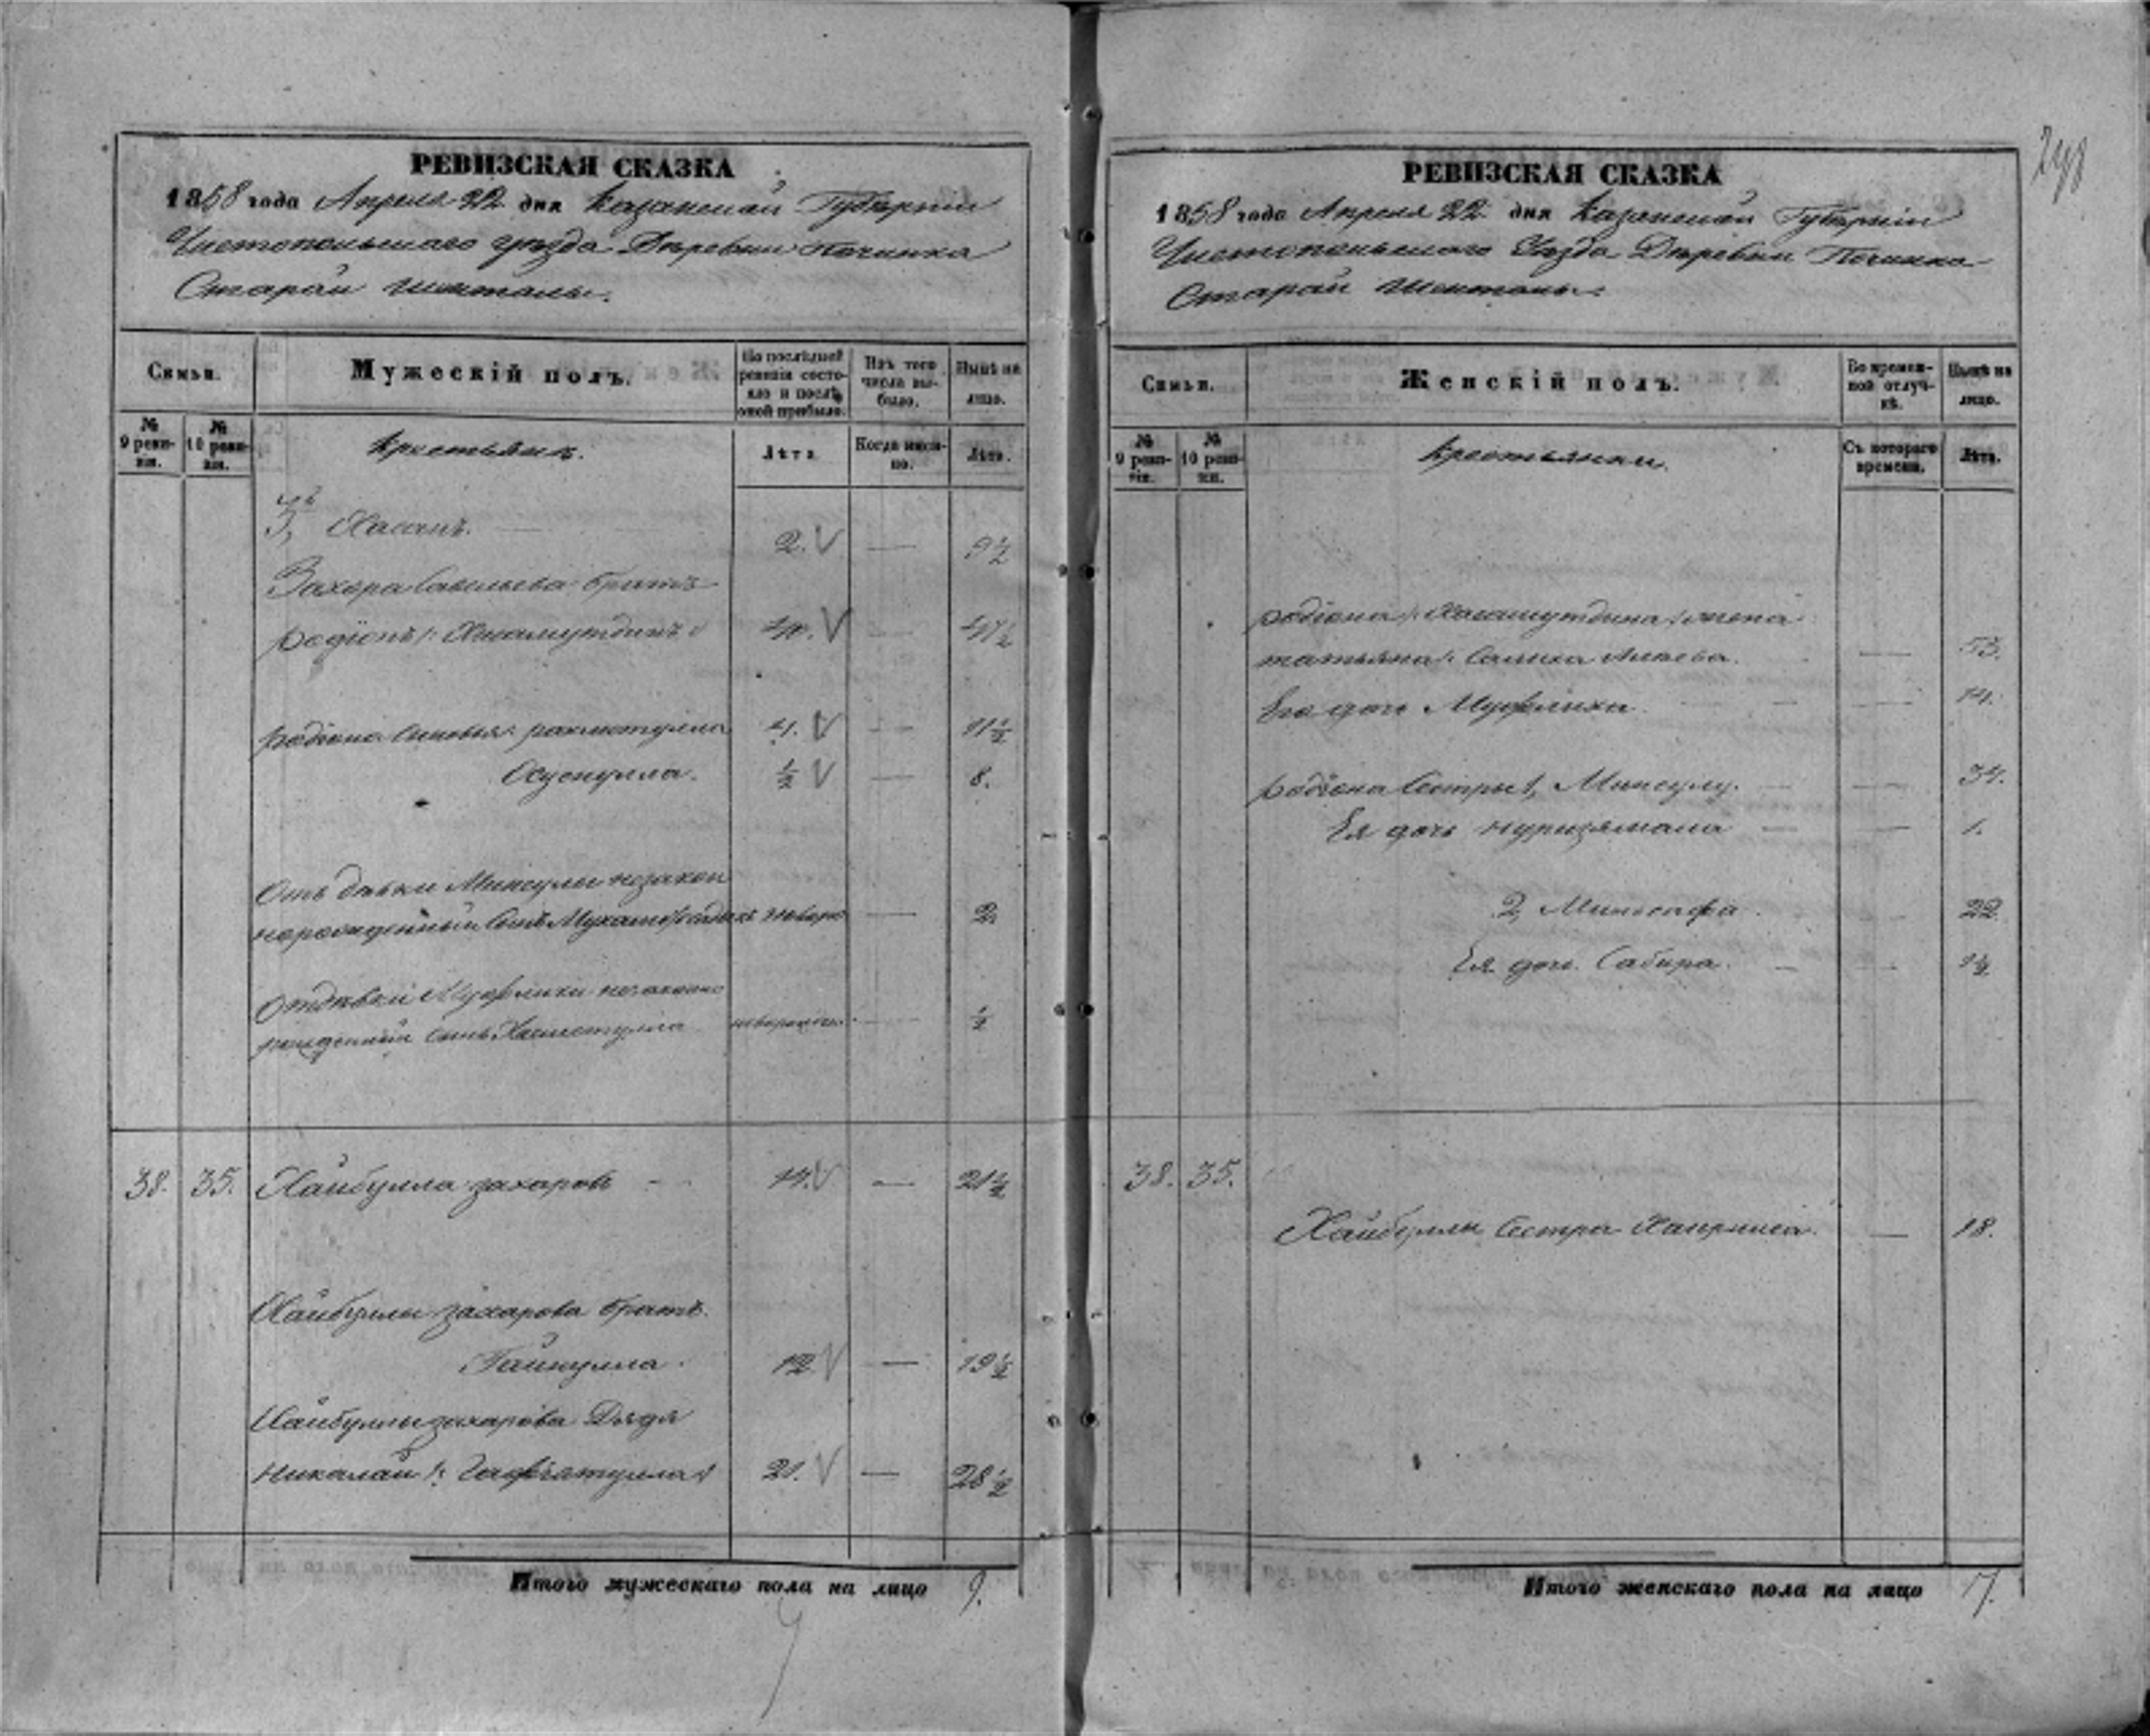 РЕВИЗСКАЯ СКАЗКА
1858 года Апреля 22 дня Казанской Губерніи
Чистопольскаго уезда Деревни Починка
Старой Шенталы.
Семьи.
Мужескій полъ.
По послѣдней ревизіи состояло и послѣ оной прибыло.
Изъ того числа выбыло.
Нынѣ на лицо.
№ 9 ревизіи.
№ 10 ревизіи.
Крестьяне.
Лѣта.
Когда именно.
Лѣта.
3, Хасанъ. 2. — 9½
Захара Савельева братъ
Родіонъ /: Хисамутдинъ :/ 40. — 47½
Родіона сыновья: Рахметулла 4. — 11½
½ — 8.
Отъ девки Минсулы незакон
норожденный сынъ — 2
Отъ девки незаконно
рожденный сынъ — ½
38. 35. Хайбулла Захаровъ 14. — 21½
Хайбуллы Захарова братъ
Гайнулла 12 — 19½
Хайбуллы Захарова Дядя
Николай /: 21. — 28½
Итого мужескаго пола на лицо 9.
РЕВИЗСКАЯ СКАЗКА
1858 года Апреля 22 дня Казанской Губерніи
Чистопольскаго Уезда Деревни Починка
Старой Шенталы.
Семьи.
Женскій полъ.
Во временной отлучкѣ.
Нынѣ на лицо.
№ 9 ревизіи.
№ 10 ревизіи.
Крестьянки.
Съ котораго времени.
Лѣта.
Родіона /: Хисамутдина :/ жена
Татьяна /: Салиха — 53.
Его дочь — 14.
Родіона Сестры 1, Минсулу. — 34.
Ея дочь Нуризямала — 1.
2, — 22
Ея дочь Сабира. — 1½
38. 35.
Хайбуллы Сестра — 18.
Итого женскаго пола на лицо 7.